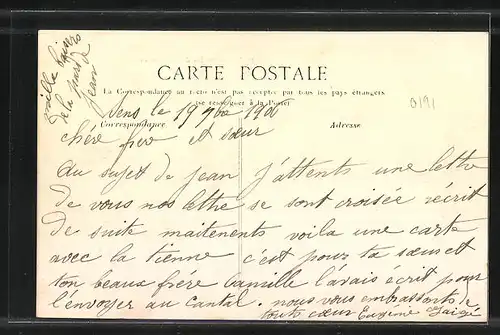 mille baisers
de la part de
jean
CARTE POSTALE
La Correspondance au recto n'est pas acceptée par tous les pays étrangers
(se renseigner à la Poste)
Sens le 19 9bre 190
Correspondance
Adresse
0191
chére frere et sœur
au sujet de jean j'attents une lettre
de vous nos lettre se sont croisée récrit
de suite maitenents voila une carte
avec la tienne c'est pour ta sœur et
ton beaux frére Camille l'avais écrit pour
l'envoyer au Cantal. nous vous embrassonts de
touts cœur Eugène